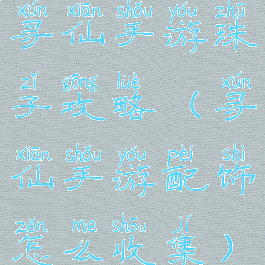 xún xiān shǒu yóu zhū
寻仙手游珠
zǐ gōng lüè xún
子攻略（寻
xiān shǒu yóu pèi shì
仙手游配饰
zěn me shōu jí
怎么收集）